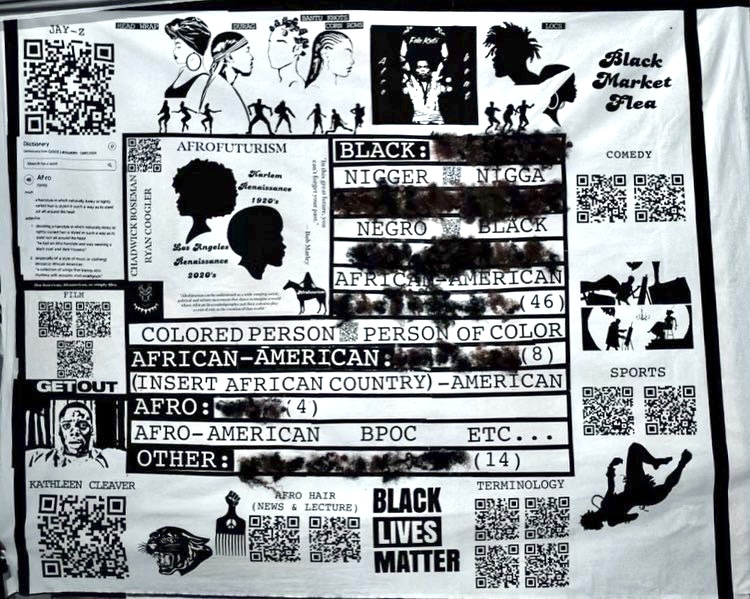 JAY-Z
HEAD WRAP
DURAG
BANTU KNOTS
CORN ROWS
Fela Kuti
LOCS
Black
Market
Flea
Dictionary
Search for a word
Afro
AFROFUTURISM
CHADWICK BOSEMAN
RYAN COOGLER
Harlem
Renaissance
1920's
Los Angeles
Renaissance
2020's
"In this great future, you
can't forget your past."
- Bob Marley
BLACK:
NIGGER NIGGA
NEGRO BLACK
AFRICAN-AMERICAN
(46)
COLORED PERSON PERSON OF COLOR
AFRICAN-AMERICAN: (8)
(INSERT AFRICAN COUNTRY)-AMERICAN
AFRO: (4)
AFRO-AMERICAN BPOC ETC...
OTHER: (14)
COMEDY
FILM
GET OUT
SPORTS
KATHLEEN CLEAVER
AFRO HAIR
(NEWS & LECTURE)
BLACK
LIVES
MATTER
TERMINOLOGY